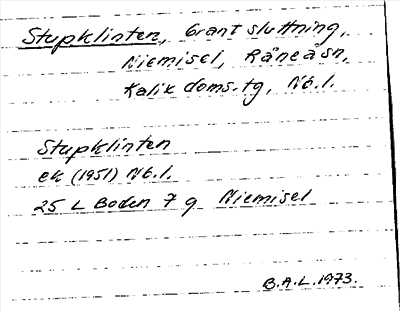 Stupklinten, brant sluttning,
Niemisel, Råneå sn,
Kalix doms.tg, Nb.l.
Stupklinten
ek (1951) Nb.l.
25 L Boden 7 g Niemisel
B.A.L. 1973.